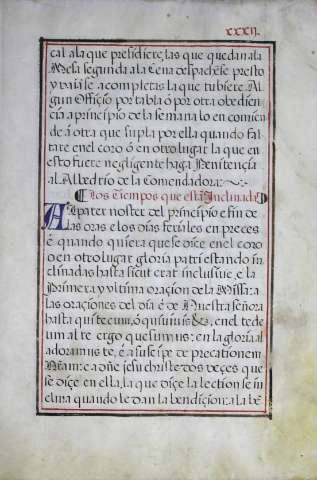 xxxij.
cal ala que presidiere, las que quedan ala
Mesa segunda ala Cena despachese presto
y vaiase acompletas la que tubiere Al
gun Offiçio por tabla ó por otra obedien
cia a principio de la semana lo en comien
de á otra que supla por ella quando fal
tare enel coro ó en otro lugar la que en
esto fuere negligente haga Penitençia
al Albedrio de la Comendadora:
Los tiempos que está Inclinada
Al pater noster del prinçipio e fin de
las oras e los dias feriales en preçes
é quando quiera que se diçe enel coro
o en otro lugar gloria patri estando in
clinadas hasta sicut erat inclusiue, e la
Primera y vltima oraçion de la Missa: a
las oraçiones del dia é de Nuestra señora
hasta qui tecum, ó qui viuis &, enel tede
um al te ergo quesumus: en la gloria al
adoramus te, é a suscipe de precationem
Nr̃am: e a dñe jesu christe dos veçes que
se diçe en ella, la que diçe la lection se in
clina quando le dan la bendiçion: a la bẽ